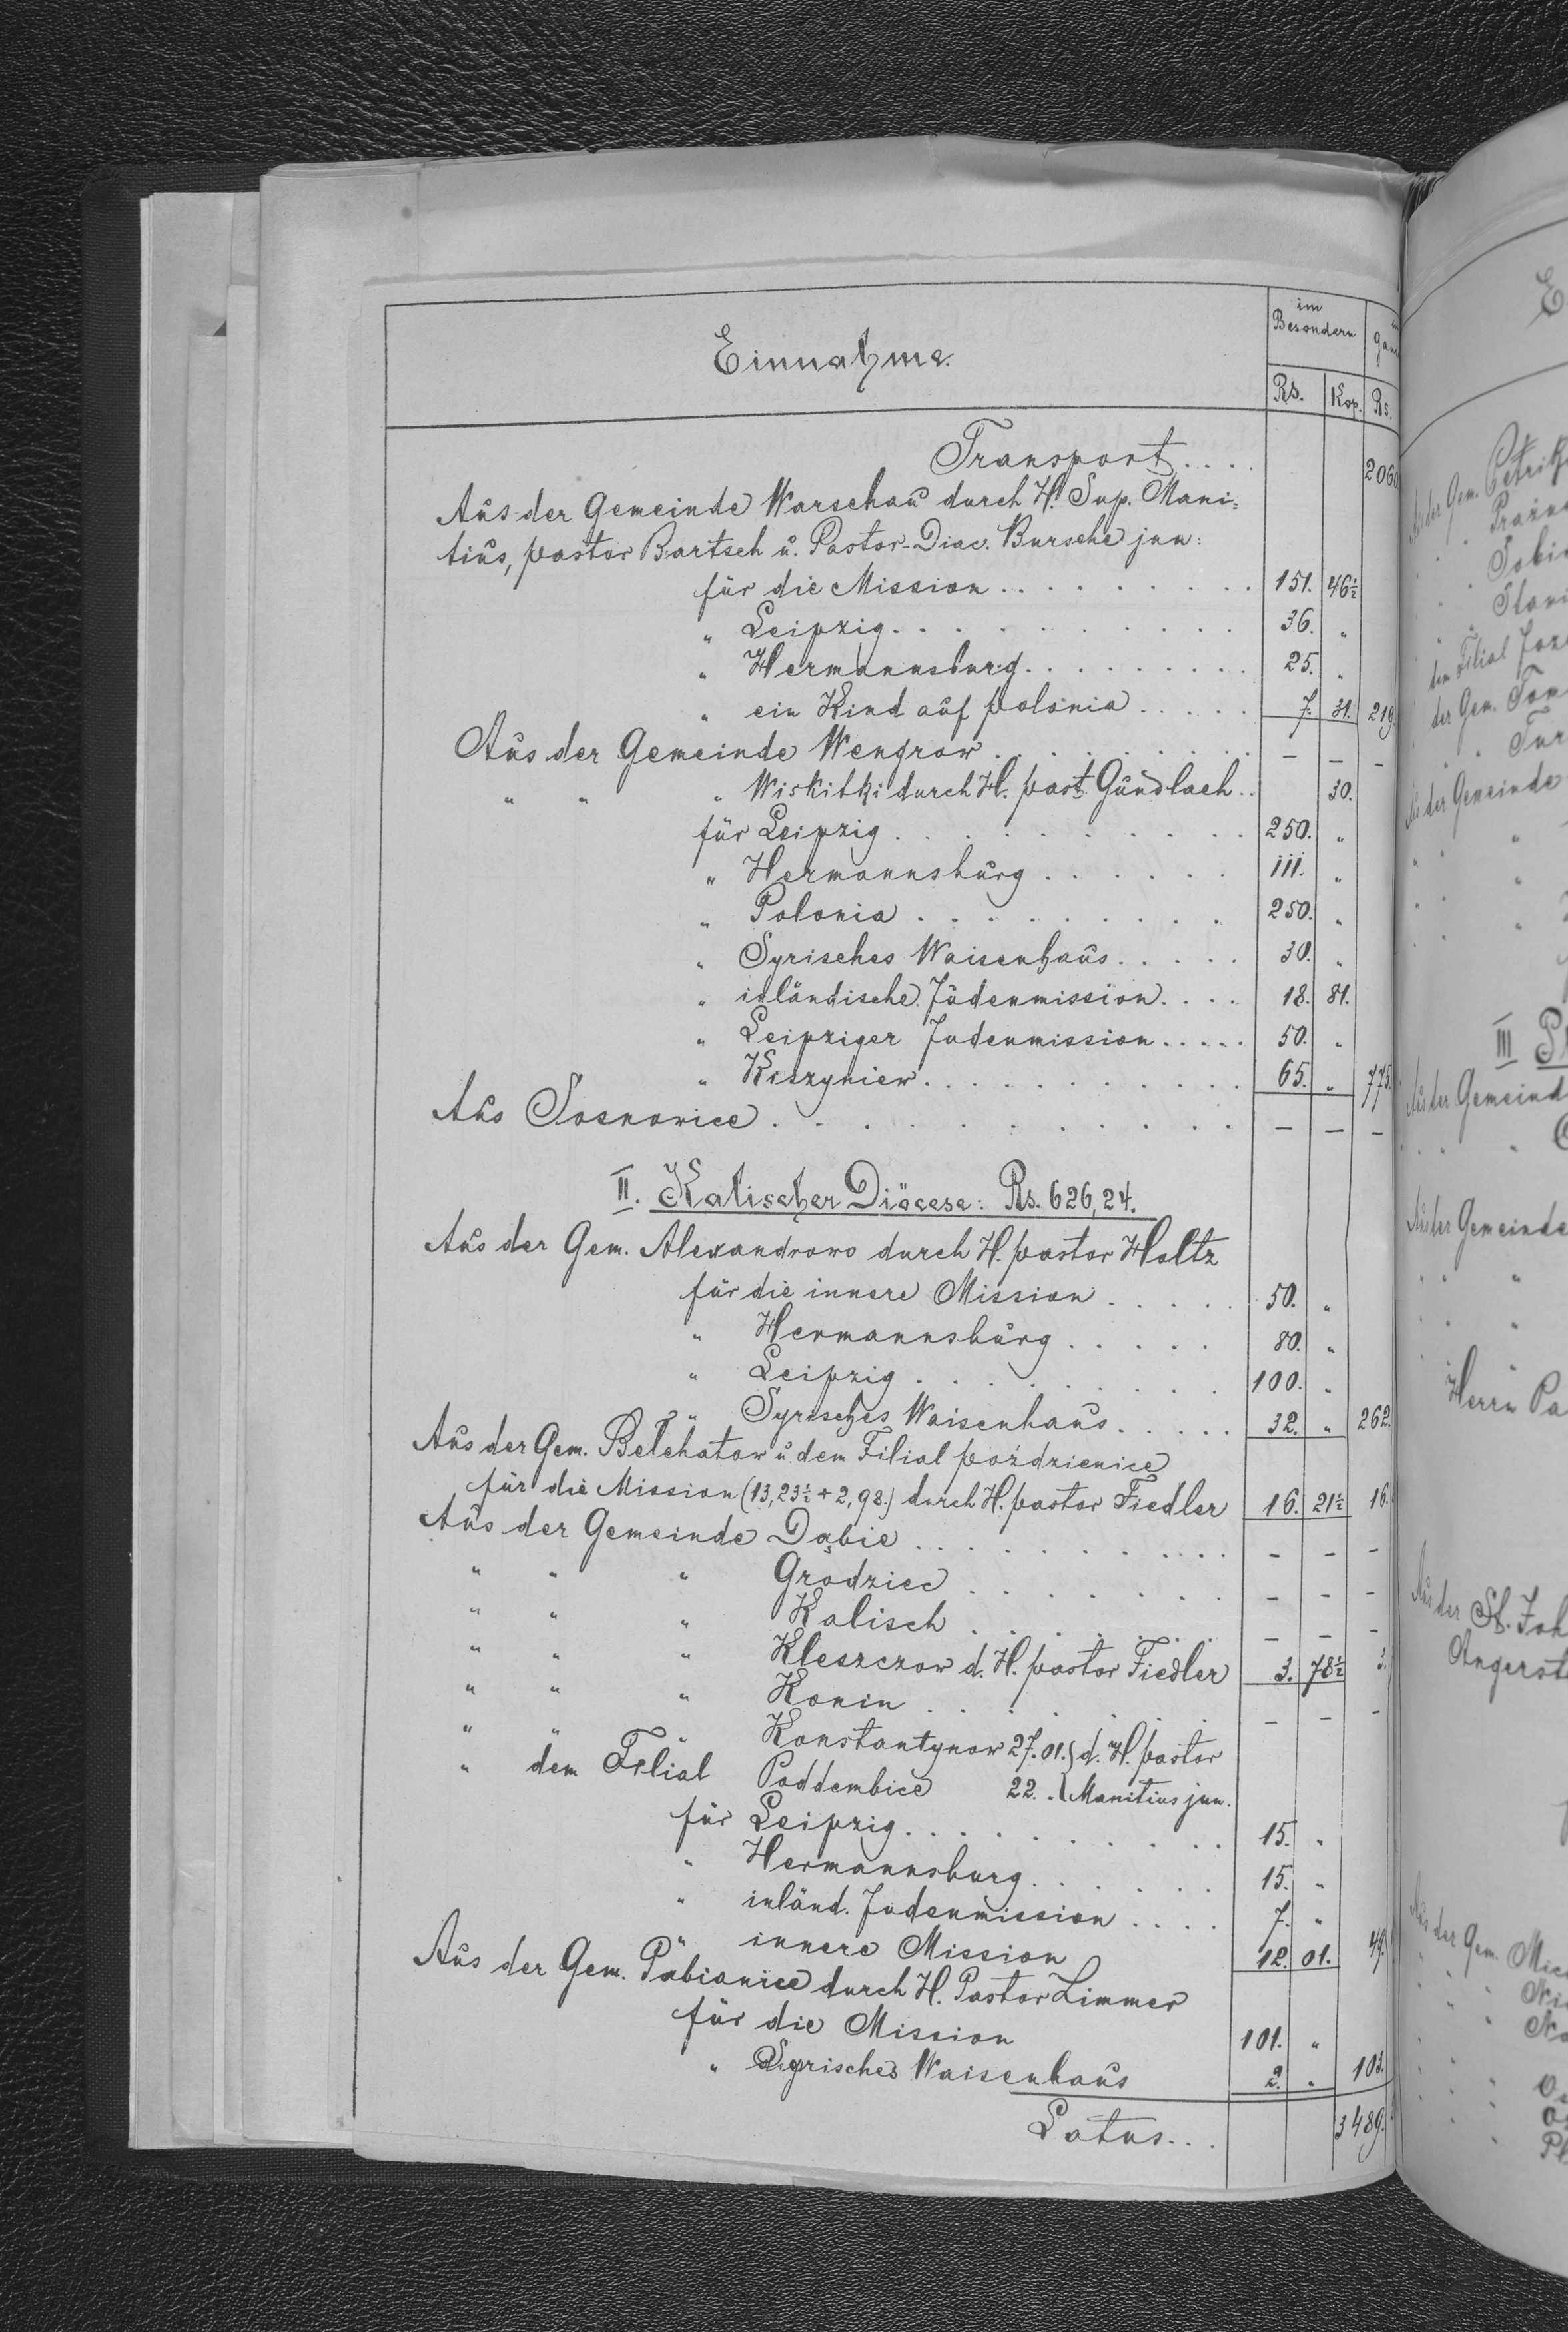 Einnahme.
im Besondern
Rs. Kop. Rs.
Transport.... 2060
Aus der Gemeinde Warschau durch H. Sup. Mani=
tius, pastor Bartsch u. Pastor-Diac. Bursche jun:
für die Mission . . . 151. 46½
" Leipzig . . . 36. "
" Hermannsburg . . . 25. "
" ein Kind auf polonia . . . 7. 31. 219
Aus der Gemeinde Wengrow . . . – – –
" " " Wiskitki durch H. past. Gundlach . . 30.
für Leipzig . . . 250. "
" Hermannsburg . . . 111. "
" Polonia . . . 250. "
" Syrisches Waisenhaus . . . 30. "
" inländische Judenmission . . . 18. 81.
" Leipziger Judenmission . . . 50. "
" Kiszyniew . . . 65. " 775.
Aus Sosnowice . . . – – –
II. Kalischer Diöcese: Rs. 626,24.
Aus der Gem. Alexandrowo durch H. pastor Holtz
für die innere Mission . . . 50. "
" Hermannsburg . . . 80. "
" Leipzig . . . 100. "
" Syrisches Waisenhaus . . . 32. " 262.
Aus der Gem. Belchatow u. dem Filial poździenice
für die Mission (13,23½ + 2,98.) durch H. pastor Fiedler 16. 21½ 16.
Aus der Gemeinde Dąbie . . . – – –
" " " Grodziec . . . – – –
" " " Kalisch . . . – – –
" " " Kleszczow d. H. pastor Fiedler 3. 78½ 3.
" " " Konin . . . – – –
" " " Konstantynow 27.01. } d. H. pastor
" dem Filial Poddembice 22. " } Manitius jun.
für Leipzig . . . 15. "
" Hermannsburg . . . 15. "
" inländ. Judenmission . . . 7. "
" innere Mission 12. 01. 49.
Aus der Gem. Pabianice durch H. Pastor Zimmer
für die Mission 101. "
" Syrisches Waisenhaus 2. " 103.
Latus... 3489.
E
Aus der Gem. Petrik
" " Prażu
" " Sobi
" " Stani
dem Filial
der Gem. Tom
" " Tur
Aus der Gemeinde
III
Aus der Gemeind
Aus der Gemeinde
Herrn Pa
Aus der St. Joh
Angerst
Aus der Gem.